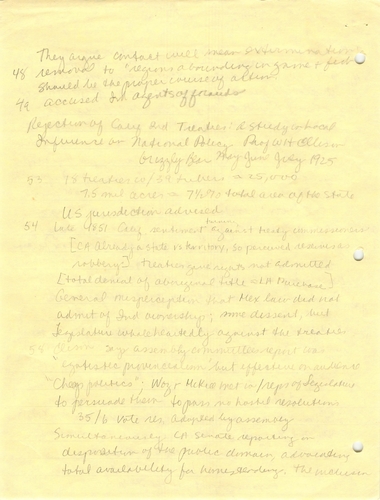 They argue contact will mean extermination
48 removal to "regions abounding in game & fish
should be the proper course of action
49 accused Ind agents of frauds
Rejection of Calif Ind Treaties: a study in local
Influence on National Policy. Prof WH Ellison
Grizzly Bear May June July 1925
53 18 treaties w/ 139 tribes = 25,000
7.5 mil acres = 7½% total area of the State
US jurisdiction advised
54 Late 1851 sentiment against treaty commissioners
[CA already a state not territory, so perceived
robbery] treaties give rights not admitted
[total denial of aboriginal title &
General misperception that Mex law did not
admit of Ind ownership; some dissent, but
legislature wholeheartedly against the treaties
55 says assembly committee report was
provocation but effective on audience
"Cheap politics": Woz & McKee met w/ reps of legislature
to persuade them to pass no hostile resolutions
35/6 vote res. adopted by assembly
Simultaneously CA Senate reporting in
disposition of the public domain, advocating
total availability for homesteading. The inclusion